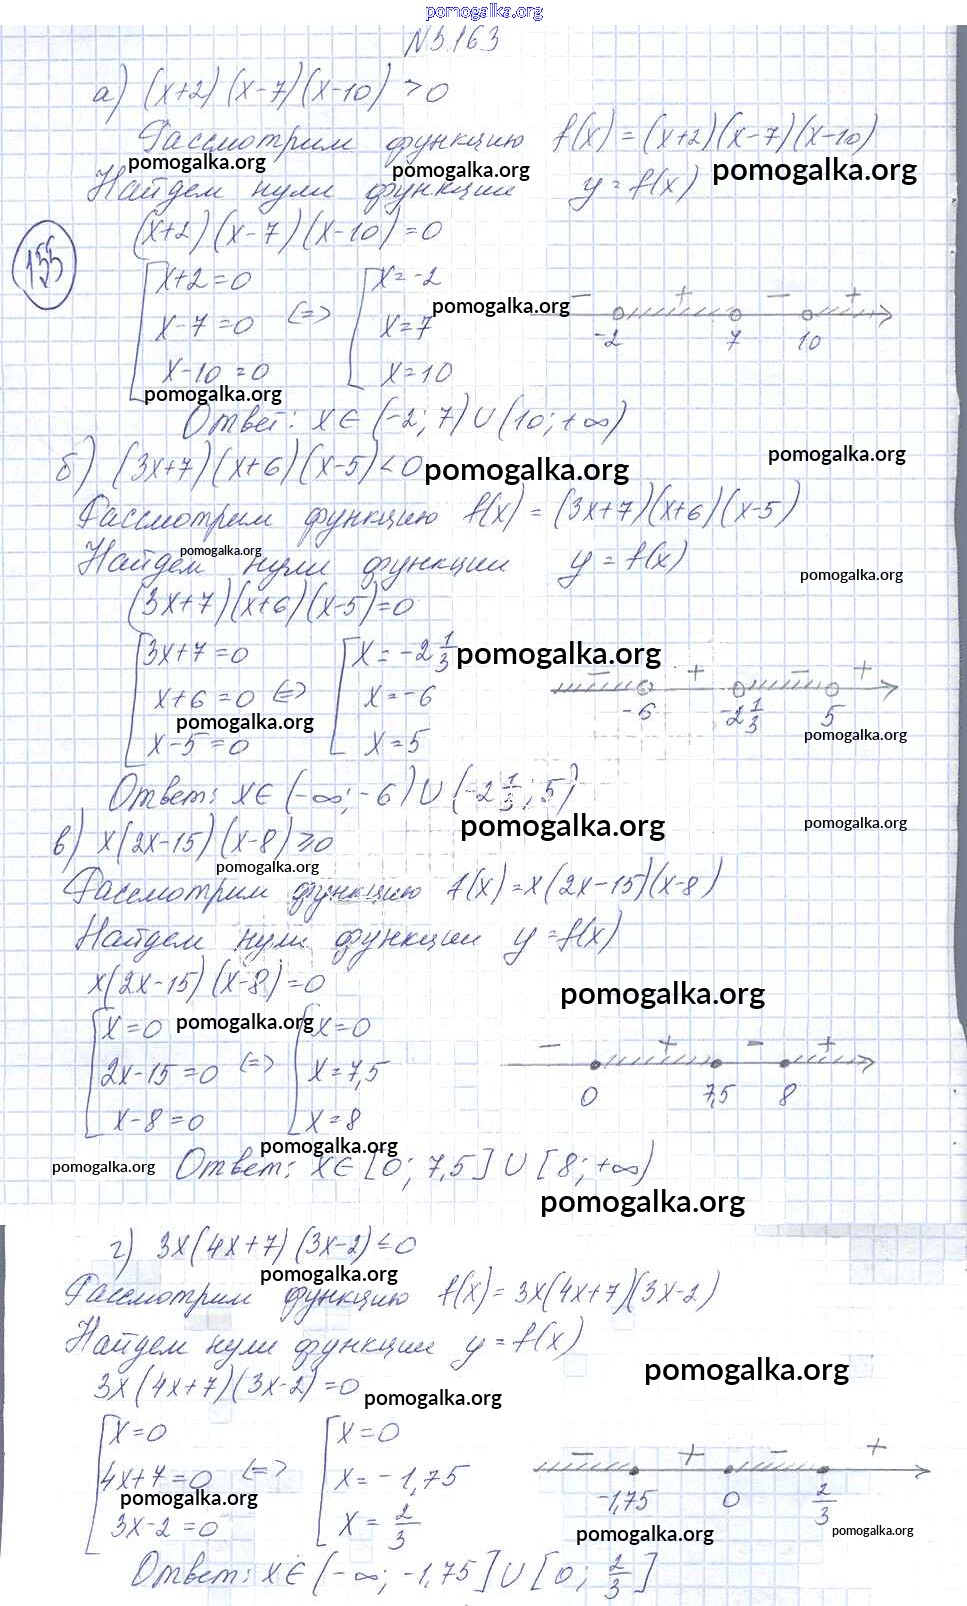 pomogalka.org
N 5.163
а) (x+2)(x-7)(x-10) > 0
Рассмотрим функцию f(x) = (x+2)(x-7)(x-10)
pomogalka.org pomogalka.org pomogalka.org
Найдем нули функции y = f(x)
(x+2)(x-7)(x-10) = 0
155
x+2=0 x=-2
pomogalka.org
x-7=0 <=> x=7
x-10=0 x=10
- + - +
-2 7 10
pomogalka.org
Ответ: x∈(-2; 7)∪(10; +∞)
б) (3x+7)(x+6)(x-5)<0
pomogalka.org pomogalka.org
Рассмотрим функцию f(x) = (3x+7)(x+6)(x-5)
pomogalka.org
Найдем нули функции y = f(x)
pomogalka.org
(3x+7)(x+6)(x-5)=0
3x+7=0 x=-2 1/3
pomogalka.org
x+6=0 <=> x=-6
pomogalka.org
x-5=0 x=5
- + - +
-6 -2 1/3 5
pomogalka.org
Ответ: x∈(-∞; -6)∪(-2 1/3; 5)
pomogalka.org pomogalka.org
в) x(2x-15)(x-8)≥0
pomogalka.org
Рассмотрим функцию f(x)=x(2x-15)(x-8)
Найдем нули функции y=f(x)
x(2x-15)(x-8)=0
pomogalka.org
x=0 pomogalka.org x=0
2x-15=0 <=> x=7,5
x-8=0 x=8
- + - +
0 7,5 8
pomogalka.org
pomogalka.org
Ответ: x∈[0; 7,5]∪[8; +∞)
pomogalka.org
г) 3x(4x+7)(3x-2)≤0
pomogalka.org
Рассмотрим функцию f(x)=3x(4x+7)(3x-2)
Найдем нули функции y=f(x)
pomogalka.org
3x(4x+7)(3x-2)=0
pomogalka.org
x=0 x=0
4x+7=0 <=> x=-1,75
pomogalka.org
3x-2=0 x=2/3
- + - +
-1,75 0 2/3
pomogalka.org pomogalka.org
Ответ: x∈(-∞; -1,75]∪[0; 2/3]